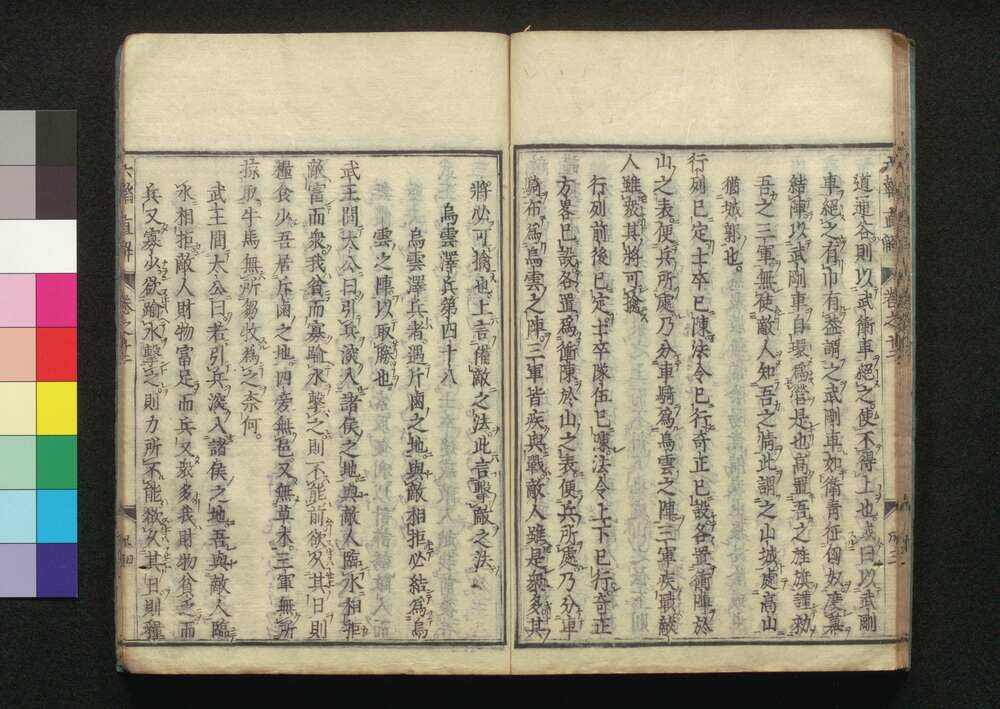 道通谷則以武衝車絕之使不得上也或曰以武剛
車絕之有巾有蓋謂之武剛車如衛青征匈奴度幕
結陣以武剛車自環爲營是也高置吾之旌旗謹勅
吾之三軍無使敵人知吾之情此謂之山城處高山
猶城郭也。
行列已定士卒已陳法令已行奇正已設各置衝陣於
山之表便兵所處乃分車騎爲烏雲之陣三軍疾戰敵
人雖衆其將可擒
行列前後已定士卒隊伍已陳法令上下已行奇正
方畧已設各置爲衝陳於山之表便兵所處乃分車
騎布爲烏雲之陣三軍皆疾與戰敵人雖是衆多其
將必可擒也上言備敵之法此言擊敵之法
烏雲澤兵第四十八
烏雲澤兵者遇斥鹵之地與敵相拒必結爲烏
雲之陣以取勝也
武王問太公曰引兵深入諸侯之地與敵人臨水相拒
敵富而衆。我貧而寡踰水擊之則不能前欲久其日則
糧食少吾居斥鹵之地四旁無邑又無草木三軍無所
掠取牛馬無所芻牧為之奈何。
武王問太公曰若引兵深入諸侯之地吾與敵人臨
水相拒敵人財物富足而兵又衆多我財物貧乏而
兵又寡少欲踰水擊之。則力所不能欲久其日則糧
六韜直解
卷之廿二